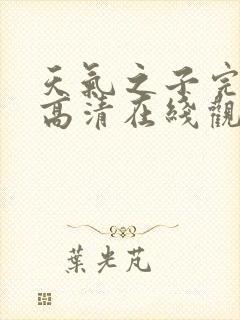 天氣之子完
高清在綫觀
葉光芃